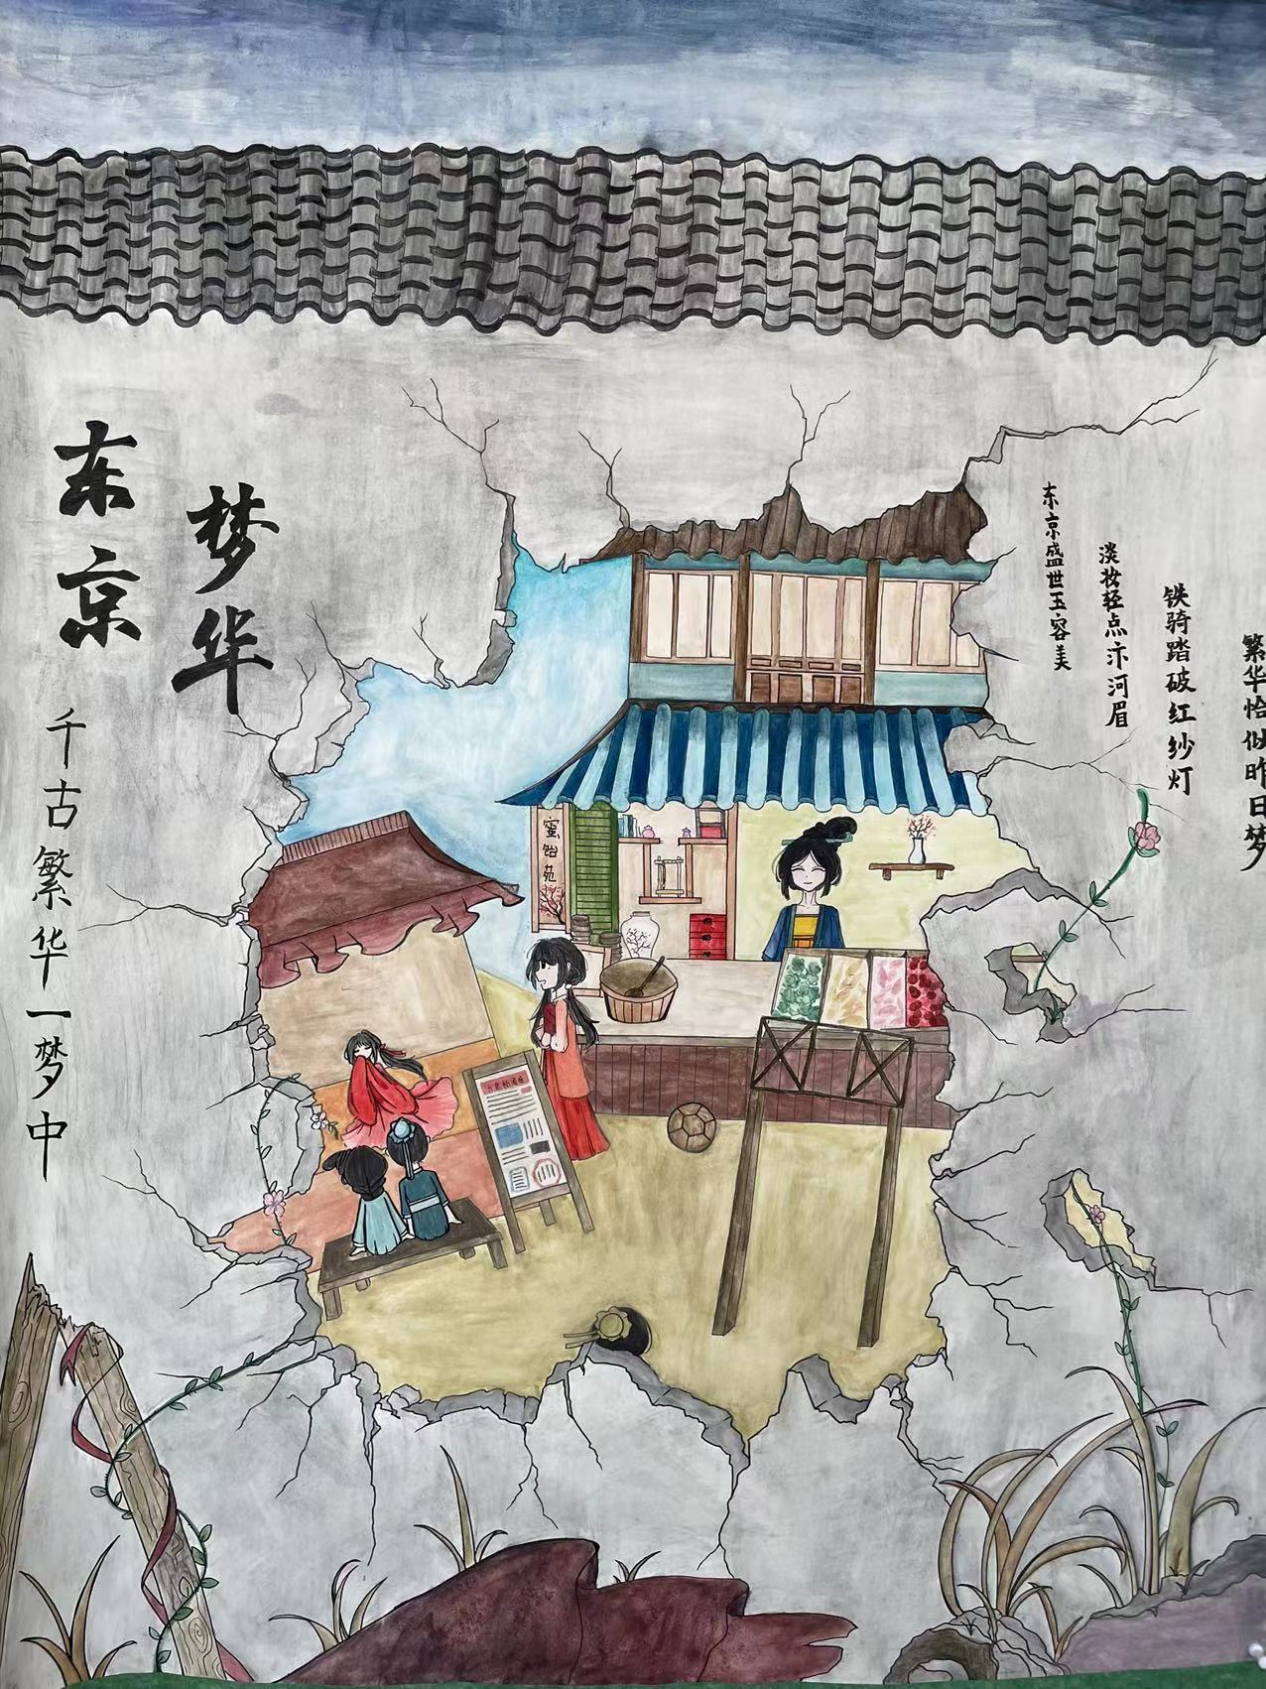 东京
梦华
千古繁华一梦中
东京盛世玉容美
淡妆轻点汴河眉
铁骑踏破红纱灯
繁华恰似昨日梦
蜜饴苑